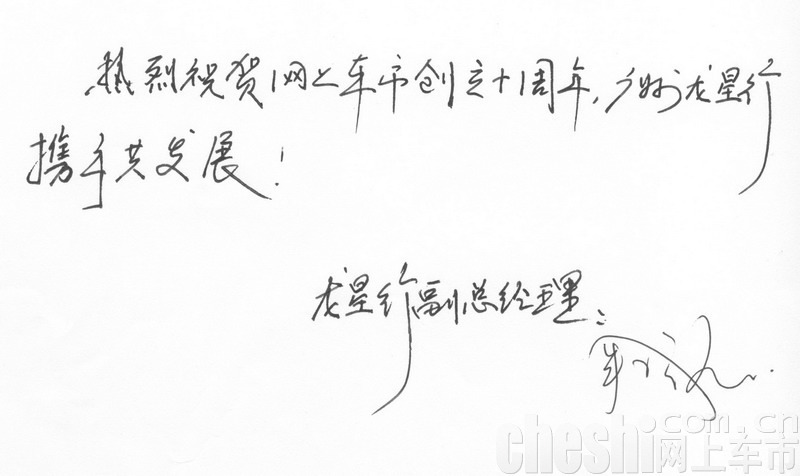 热烈祝贺网上车市创立十周年,广州龙星行
携手共发展!
龙星行副总经理:
com.cn
cheshi网上车市